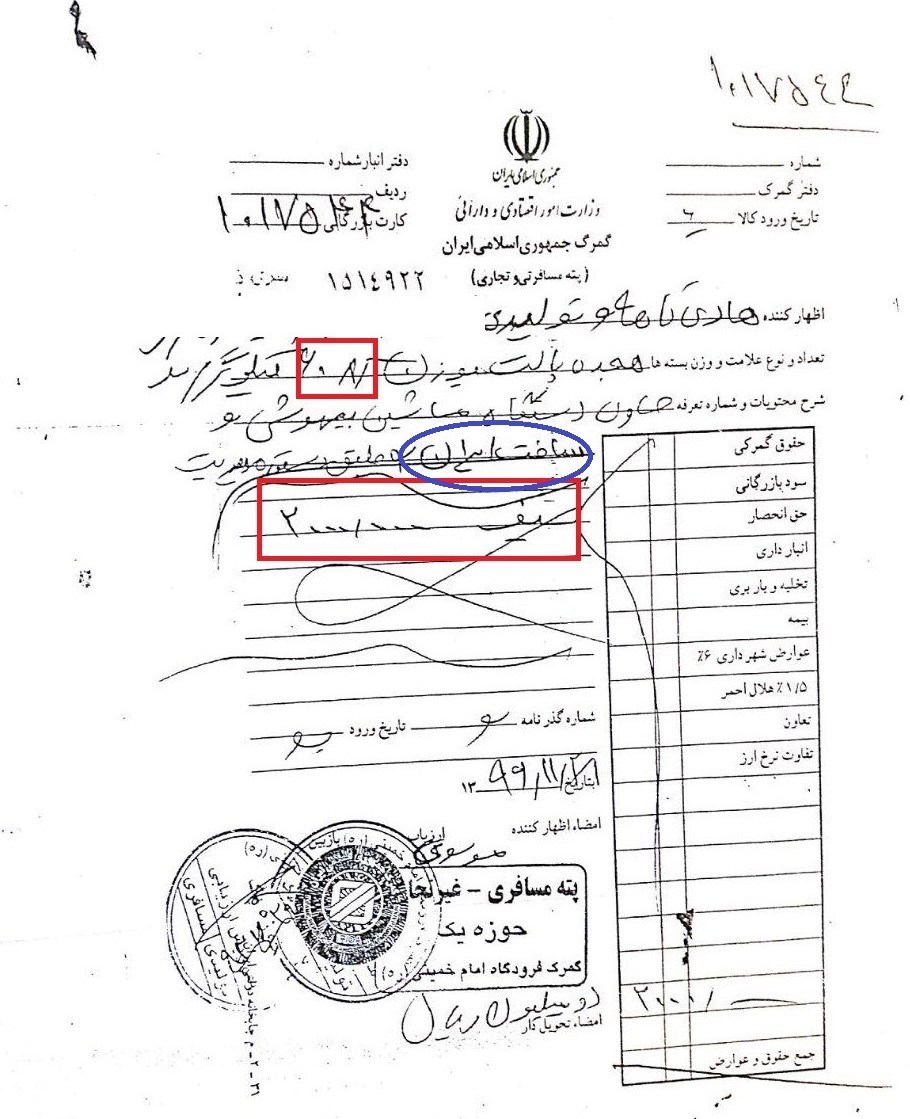 ۱۰۱۷۵۴۴
جمهوری اسلامی ایران
وزارت امور اقتصادی و دارائی
گمرک جمهوری اسلامی ایران
(پته مسافرتی و تجاری)
شماره
دفتر گمرک
تاریخ ورود کالا
دفتر انبار شماره
ردیف
کارت بازرگانی ۱۰۱۷۵۴۴
۱۵۱٤۹۲۲
اظهار کننده
تعداد و نوع علامت و وزن بسته ها هجده پالت بوزن کیلوگرم
شرح محتویات و شماره تعرفه حاوی دستگاه ماشین بیهوشی نو
ساخت
سیف ۲۰۰۰/۰۰۰
حقوق گمرکی
سود بازرگانی
حق انحصار
انبار داری
تخلیه و باربری
بیمه
عوارض شهرداری ۶٪
۱/۵٪ هلال احمر
تعاون
تفاوت نرخ ارز
۲۰۰۰/
جمع حقوق و عوارض
شماره گذرنامه تاریخ ورود
بتاریخ ۱۳
امضاء اظهار کننده
ارزیاب
موسوی
پته مسافری - غیرتجا
حوزه یک
گمرک فرودگاه امام خمینی (ره)
دو میلیون ریال
امضاء تحویل دار